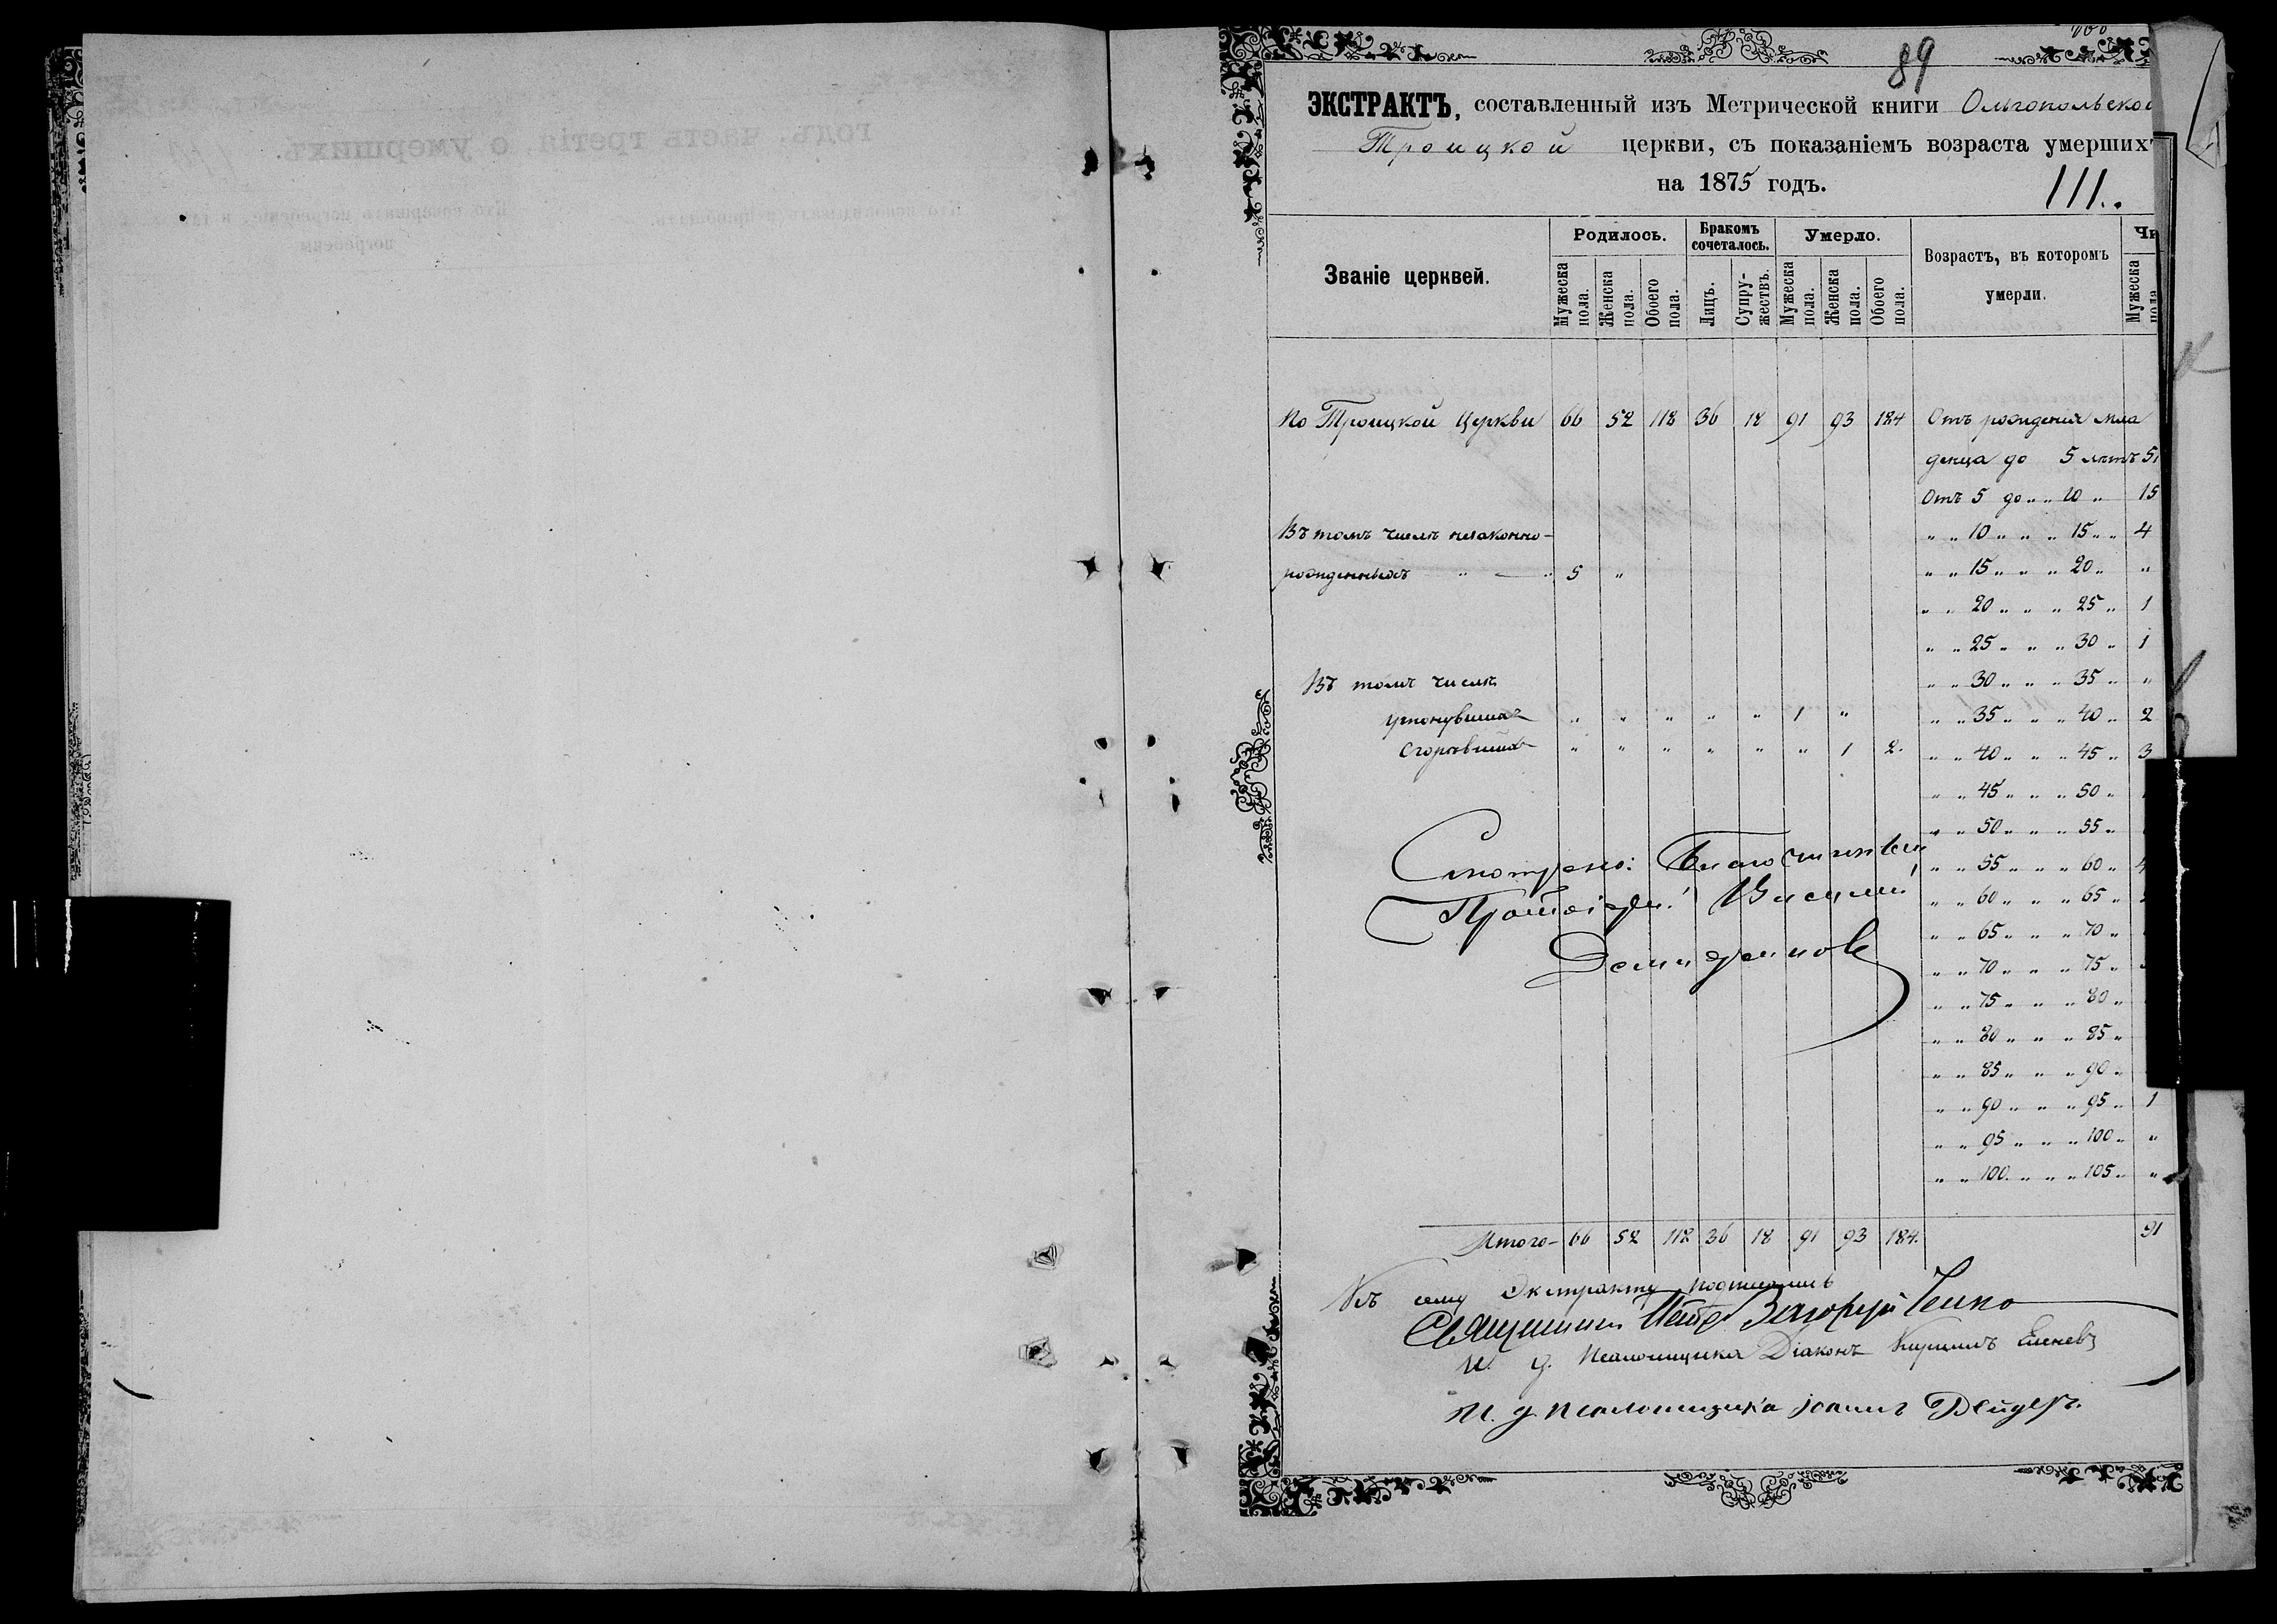 89
ЭКСТРАКТЪ, составленный изъ Метрической книги Ольгопольской
Троицкой церкви, съ показаніемъ возраста умерших
на 1875 годъ.
111.
Званіе церквей.
Родилось.
Мужеска пола.
Женска пола.
Обоего пола.
Бракомъ сочеталось.
Лицъ.
Супружествъ.
Умерло.
Мужеска пола.
Женска пола.
Обоего пола.
Возрастъ, въ которомъ умерли.
Мужеска
По Троицкой Церкви 66 52 118 36 18 91 93 184 Отъ рожденія мла
денца до 5 лѣтъ 51
Отъ 5 до „ „ 10 „ 15
Въ томъ числѣ незаконно- „ „ 10 „ „ „ 15 „ „ 4
рожденныхъ „ — „ 5 „ „ „ 15 „ „ „ 20 „ „
„ „ 20 „ „ „ 25 „ 1
„ „ 25 „ „ „ 30 „ 1
Въ томъ числѣ „ „ 30 „ „ „ 35 „ „
утонувших „ „ „ „ „ 1 „ „ „ 35 „ „ „ 40 „ 2
сгорѣвших „ „ „ „ „ „ 1 2. „ „ 40 „ „ „ 45 „ 3
„ „ 45 „ „ „ 50 „
„ „ 50 „ „ „ 55 „
Смотрено: Благочинный „ „ 55 „ „ „ 60 „ 4
Протоіерей Василій „ „ 60 „ „ „ 65 „
„ „ 65 „ „ „ 70 „
„ „ 70 „ „ „ 75 „
„ „ 75 „ „ „ 80 „
„ „ 80 „ „ „ 85 „
„ „ 85 „ „ „ 90 „
„ „ 90 „ „ „ 95 „ 1
„ „ 95 „ „ „ 100 „ „
„ „ 100 „ „ „ 105 „ „
Итого- 66 52 118 36 18 91 93 184. 91
Къ сему Экстракту подписались
Священникъ Петръ
И. д. Псаломщика Діаконъ Кириллъ
И. д. псаломщика Іоаннъ